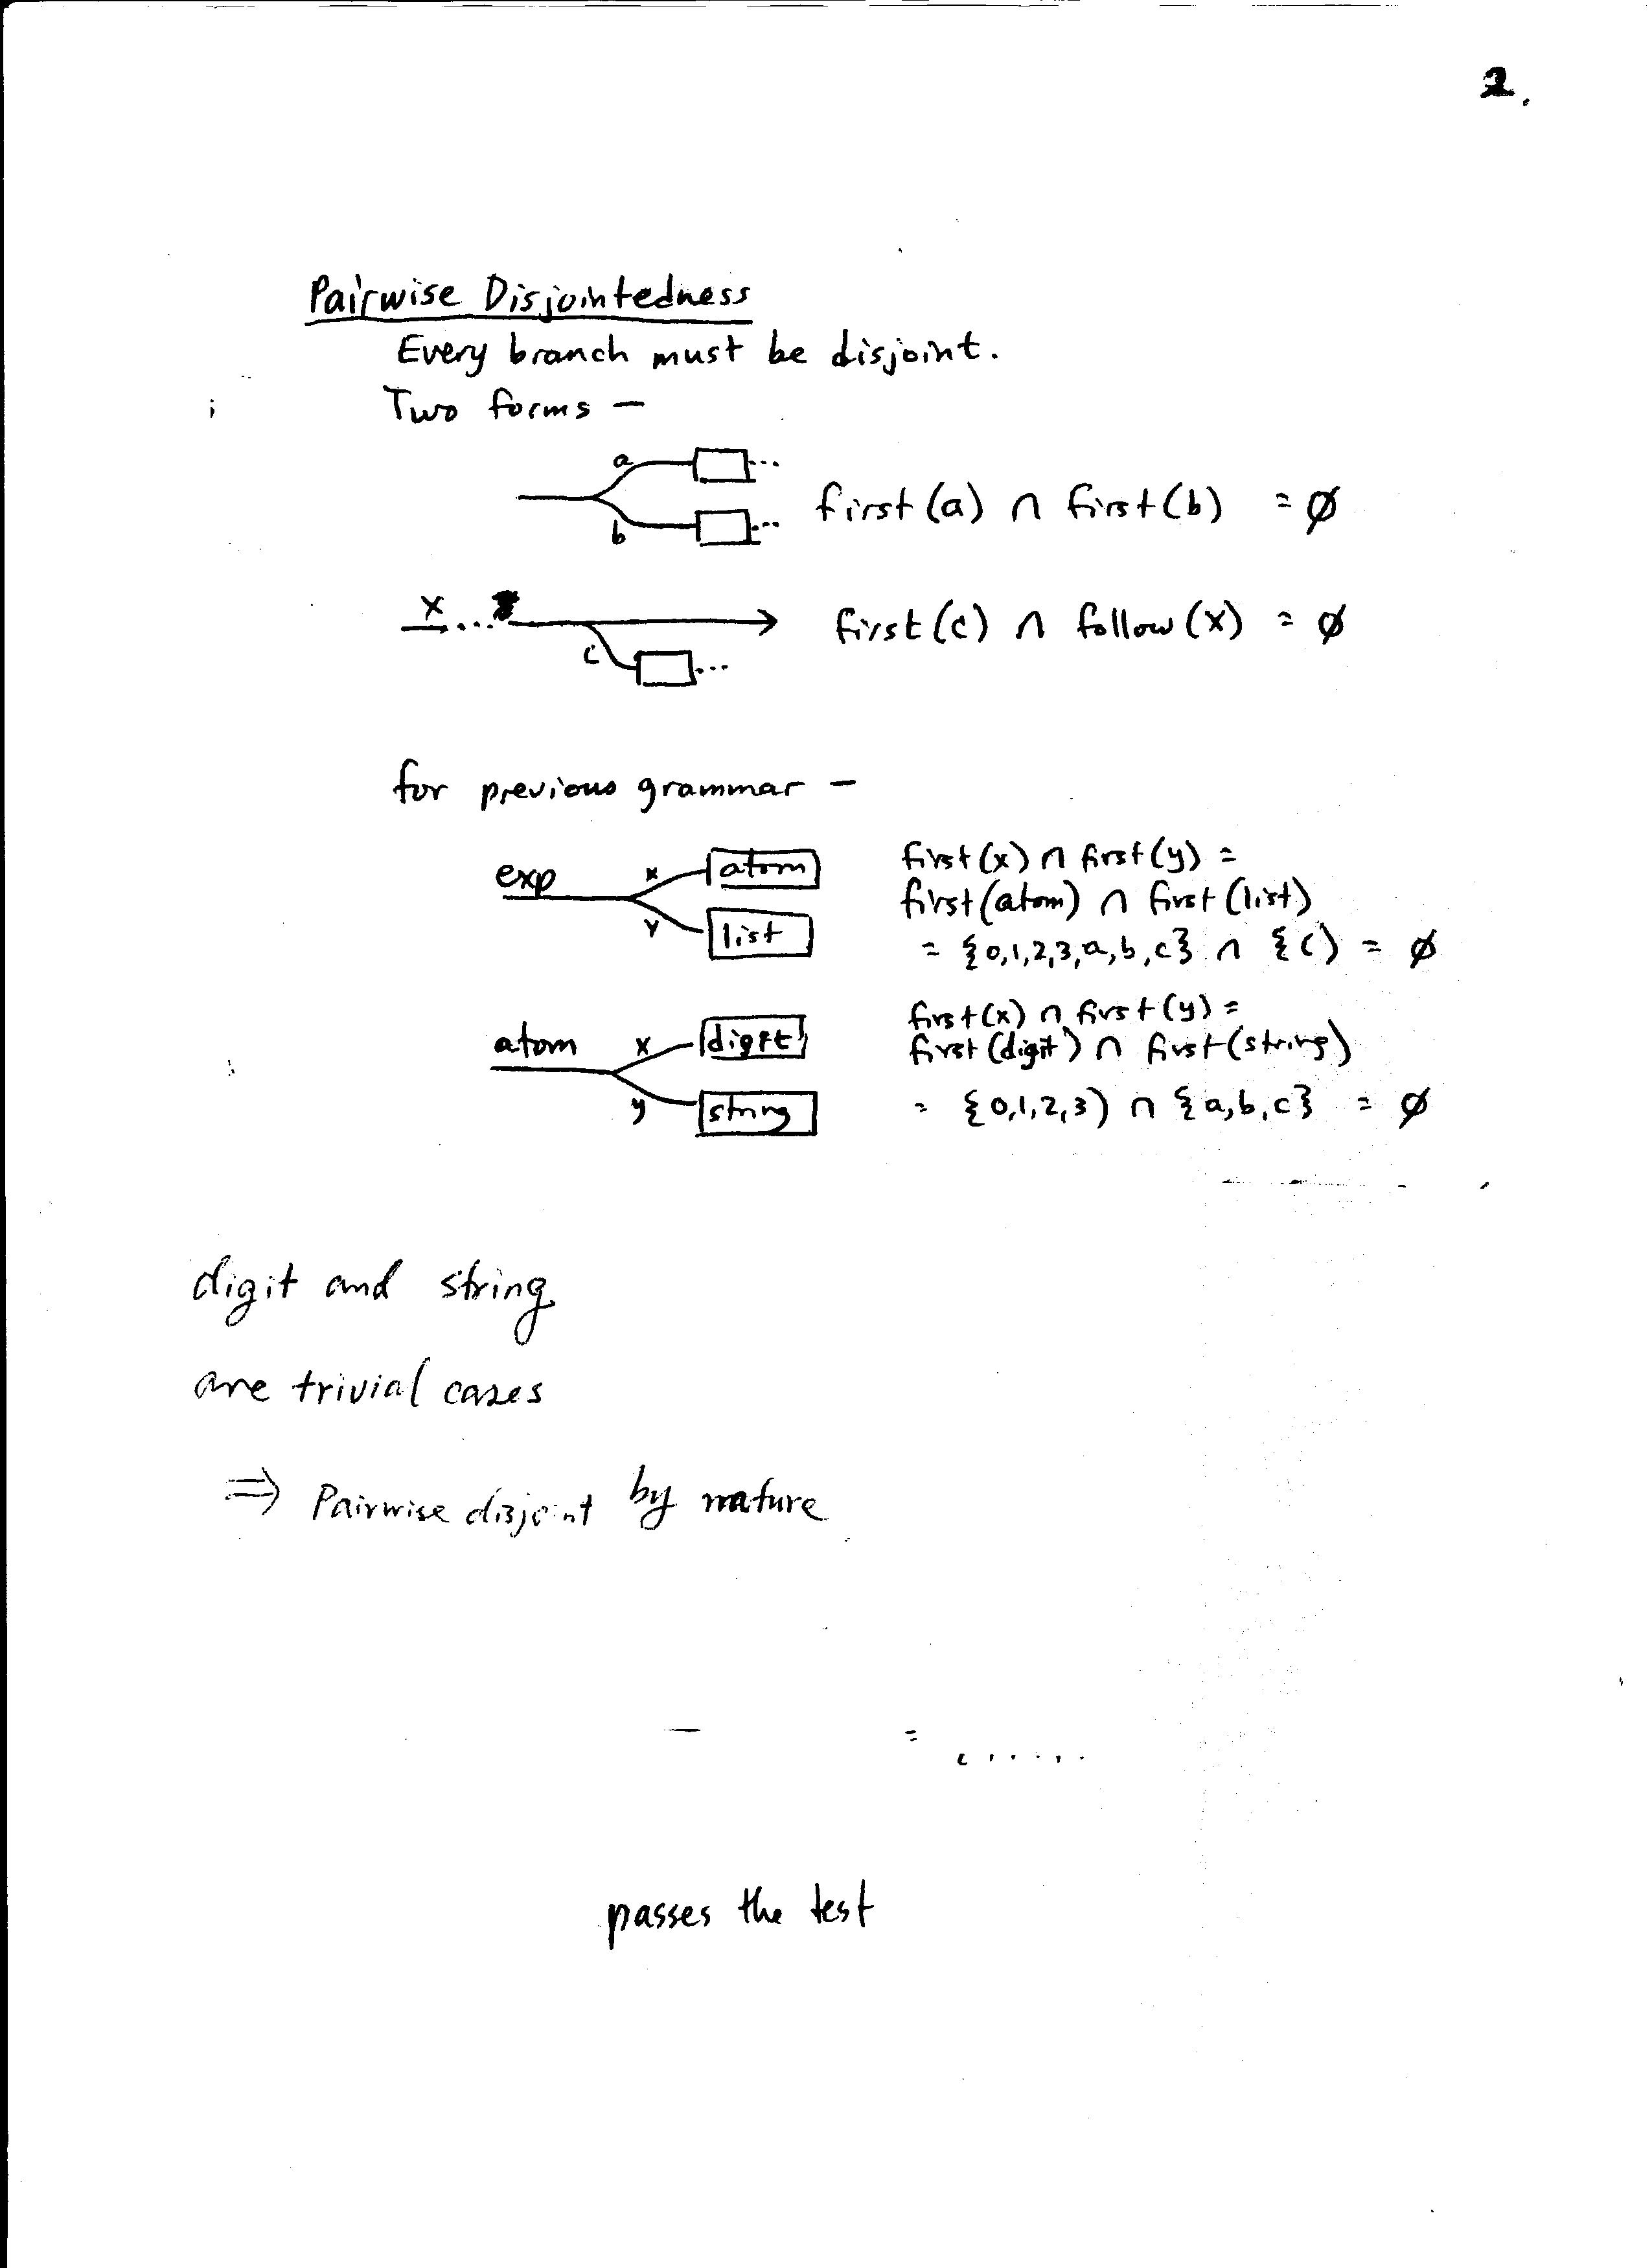 2.
Pairwise Disjointedness
Every branch must be disjoint.
Two forms —
a
b
first(a) ∩ first(b) = ∅
x ...
c
first(c) ∩ follow(x) = ∅
for previous grammar —
exp x atom
y list
first(x) ∩ first(y) =
first(atom) ∩ first(list)
= {0,1,2,3,a,b,c} ∩ {() = ∅
atom x digit
y string
first(x) ∩ first(y) =
first(digit) ∩ first(string)
= {0,1,2,3) ∩ {a,b,c} = ∅
digit and string
are trivial cases
⇒ Pairwise disjoint by nature
passes the test